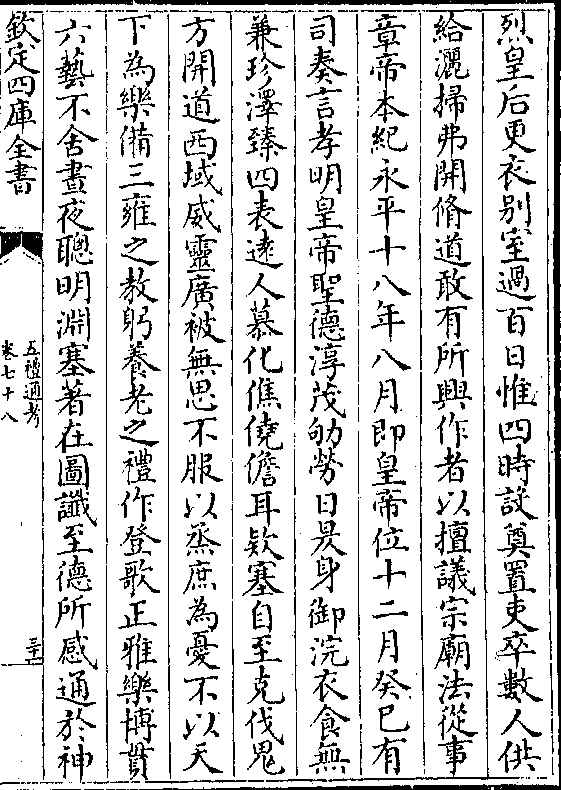 烈皇后更衣别室過百日惟四時設奠置吏卒數人供
給灑掃弗開脩道敢有所興作者以擅議宗廟法從事
章帝本紀永平十八年八月即皇帝位十二月癸巳有
司奏言孝明皇帝聖德淳茂劬勞日昃身御浣衣食無
兼珍澤臻四表逺人慕化僬僥儋耳欵塞自至克伐鬼
方開道西域威靈廣被無思不服以烝庶為憂不以天
下為樂備三雍之教躬養老之禮作登歌正雅樂博貫
六藝不舍晝夜聰明淵塞著在圖讖至德所感通於神
欽定四庫全書
五禮通考
卷七十八